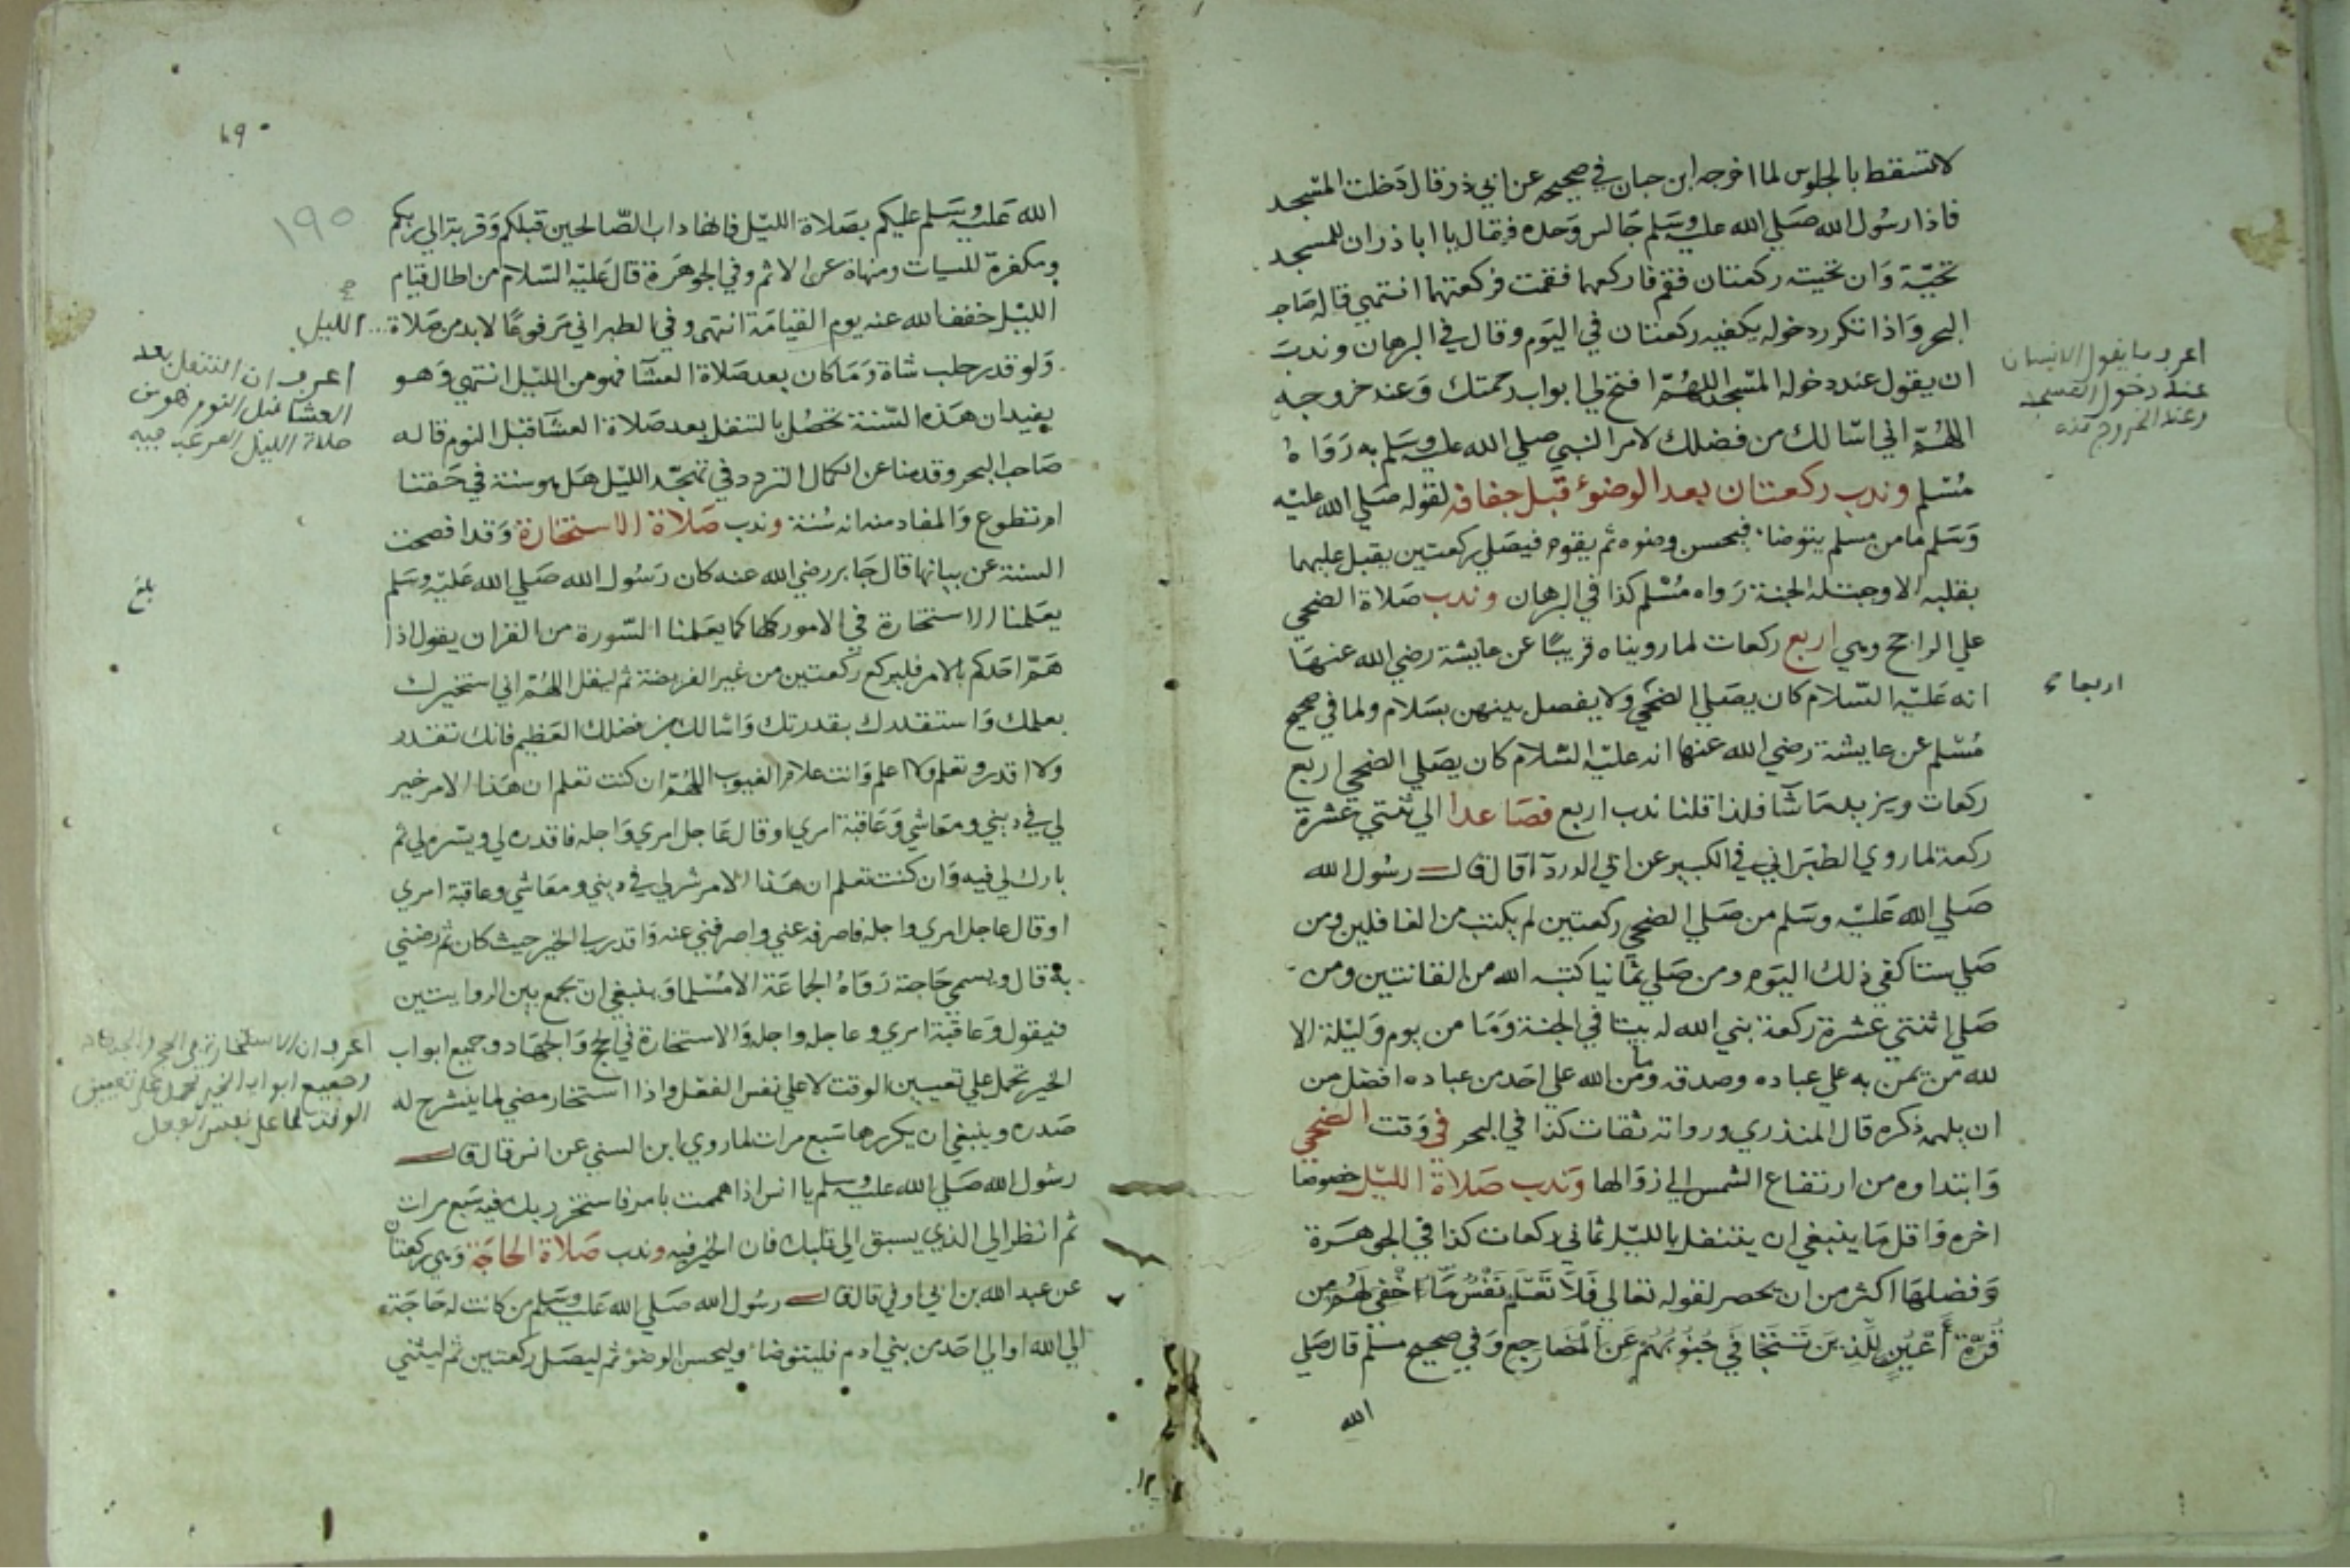 لا تسقط بالجلوس لما اخرجه ابن حبان في صحيحه عن ابي ذر قال دخلت المسجد
فاذا رسول الله صلي الله عليه وسلم جالس وحده فقال يا ابا ذر ان للمسجد
تحيّة وان تحيته ركعتان فقم فاركعهما فقمت فركعتهما انتهي قاله صاحب
البحر واذا تكرر دخوله يكفيه ركعتان في اليوم وقال في البرهان وندب
ان يقول عند دخوله المسجد اللهم افتح لي ابواب رحمتك وعند خروجه
اللهم اني اسالك من فضلك لامر النبي صلي الله عليه وسلم به رواه
مسلم وندب ركعتان بعد الوضوء قبل جفافه لقوله صلي الله عليه
وسلم ما من مسلم يتوضا فيحسن وضوه ثم يقوم فيصلي ركعتين يقبل عليهما
بقلبه الا وجبت له الجنة رواه مسلم كذا في البرهان وندب صلاة الضحي
علي الراجح وهي اربع ركعات لما رويناه قريبًا عن عايشة رضي الله عنها
انه عليه السلام كان يصلي الضحي ولا يفصل بينهن بسلام ولما في صحيح
مسلم عن عايشة رضي الله عنها انه عليه السلام كان يصلي الضحي اربع
ركعات ويزيد ما شآ فلذا قلنا ندب اربع فصاعدا الي ثنتي عشرة
ركعة لما روي الطبراني في الكبير عن ابي الدردآ قال قال رسول الله
صلي الله عليه وسلم من صلي الضحي ركعتين لم يكتب من الغافلين ومن
صلي ستا كفي ذلك اليوم ومن صلي ثمانيا كتبه الله من القانتين ومن
صلي اثنتي عشرة ركعة بني الله له بيتا في الجنة وما من يوم وليلة الا
لله من يمن به علي عباده وصدقه وما من الله علي احد من عباده افضل من
ان يلهمه ذكره قال المنذري ورواته ثقات كذا في البحر في وقت الضحي
وابتداوه من ارتفاع الشمس الي زوالها وندب صلاة الليل خصوصا
اخره واقل ما ينبغي ان يتنفل بالليل ثماني ركعات كذا في الجوهرة
وفضلها اكثر من ان يحصر لقوله تعالي فَلَا تَعْلَم نَفْسٌ مَّا اخْفي لَهُم من
قُرّة أَعْيُنٍ للّذين تتجَافي جُنُوبُهم عَن المَضَاجع وفي صحيح مسلم قال صلي
الله
اعرف ما يقول الانسان
عند دخول المسجد
وعند الخروج منه
اربعا
١٩٠
الله عليه وسلم عليكم بصلاة الليل فانها داب الصالحين قبلكم وقربة الي ربكم
ومكفرة للسيات ومنهاة عن الاثم وفي الجوهرة قال عليه السلام من اطال قيام
الليل خفف الله عنه يوم القيامة انتهي وفي الطبراني مرفوعًا لابد من صلاة الليل
ولو قدر حلب شاة وما كان بعد صلاة العشآ فهو من الليل انتهي وهو
يفيد ان هذه السنة تحصل بالتنفل بعد صلاة العشآ قبل النوم قاله
صاحب البحر وقدمنا عن الكمال التردد في تهجد الليل هل هو سنة في حقنا
ام تطوع والمفاد منه انه سنة وندب صلاة الاستخارة وقد افصحت
السنة عن بيانها قال جابر رضي الله عنه كان رسول الله صلي الله عليه وسلم
يعلمنا الاستخارة في الامور كلها كما يعلمنا السورة من القران يقول اذا
هم احدكم بالامر فليركع ركعتين من غير الفريضة ثم ليقل اللهم اني استخيرك
بعلمك واستقدرك بقدرتك واسالك من فضلك العظيم فانك تقدر
ولا اقدر وتعلم ولا اعلم وانت علام الغيوب اللهم ان كنت تعلم ان هذا الامر خير
لي في ديني ومعاشي وعاقبة امري او قال عاجل امري واجله فاقدره لي ويسره لي ثم
بارك لي فيه وان كنت تعلم ان هذا الامر شر لي في ديني ومعاشي وعاقبة امري
او قال عاجل امري واجله فاصرفه عني واصرفني عنه واقدر لي الخير حيث كان ثم رضني
به قال ويسمي حاجته رواه الجماعة الا مسلما وينبغي ان يجمع بين الروايتين
فيقول وعاقبة امري وعاجله واجله والاستخارة في الحج والجهاد وجميع ابواب
الخير تحمل علي تعيين الوقت لا علي نفس الفعل واذا استخار مضي لما ينشرح له
صدره وينبغي ان يكررها سبع مرات لما روي ابن السني عن انس قال قال
رسول الله صلي الله عليه وسلم يا انس اذا هممت بامر فاستخر ربك فيه سبع مرات
ثم انظر الي الذي يسبق الي قلبك فان الخير فيه وندب صلاة الحاجة وهي ركعتان
عن عبد الله بن ابي اوفي قال قال رسول الله صلي الله عليه وسلم من كانت له حاجة
الي الله او الي احد من بني ادم فليتوضا وليحسن الوضو ثم ليصل ركعتين ثم ليثني
اعرف ان التنفل بعد
العشا قبل النوم هو من
صلاة الليل
بلغ
اعرف ان الاستخارة في الحج والجهاد
وجميع ابواب الخير تحمل علي تعيين
الوقت لا علي نفس الفعل